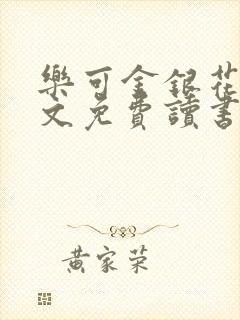 樂可金銀花
文免費讀書
黃家榮